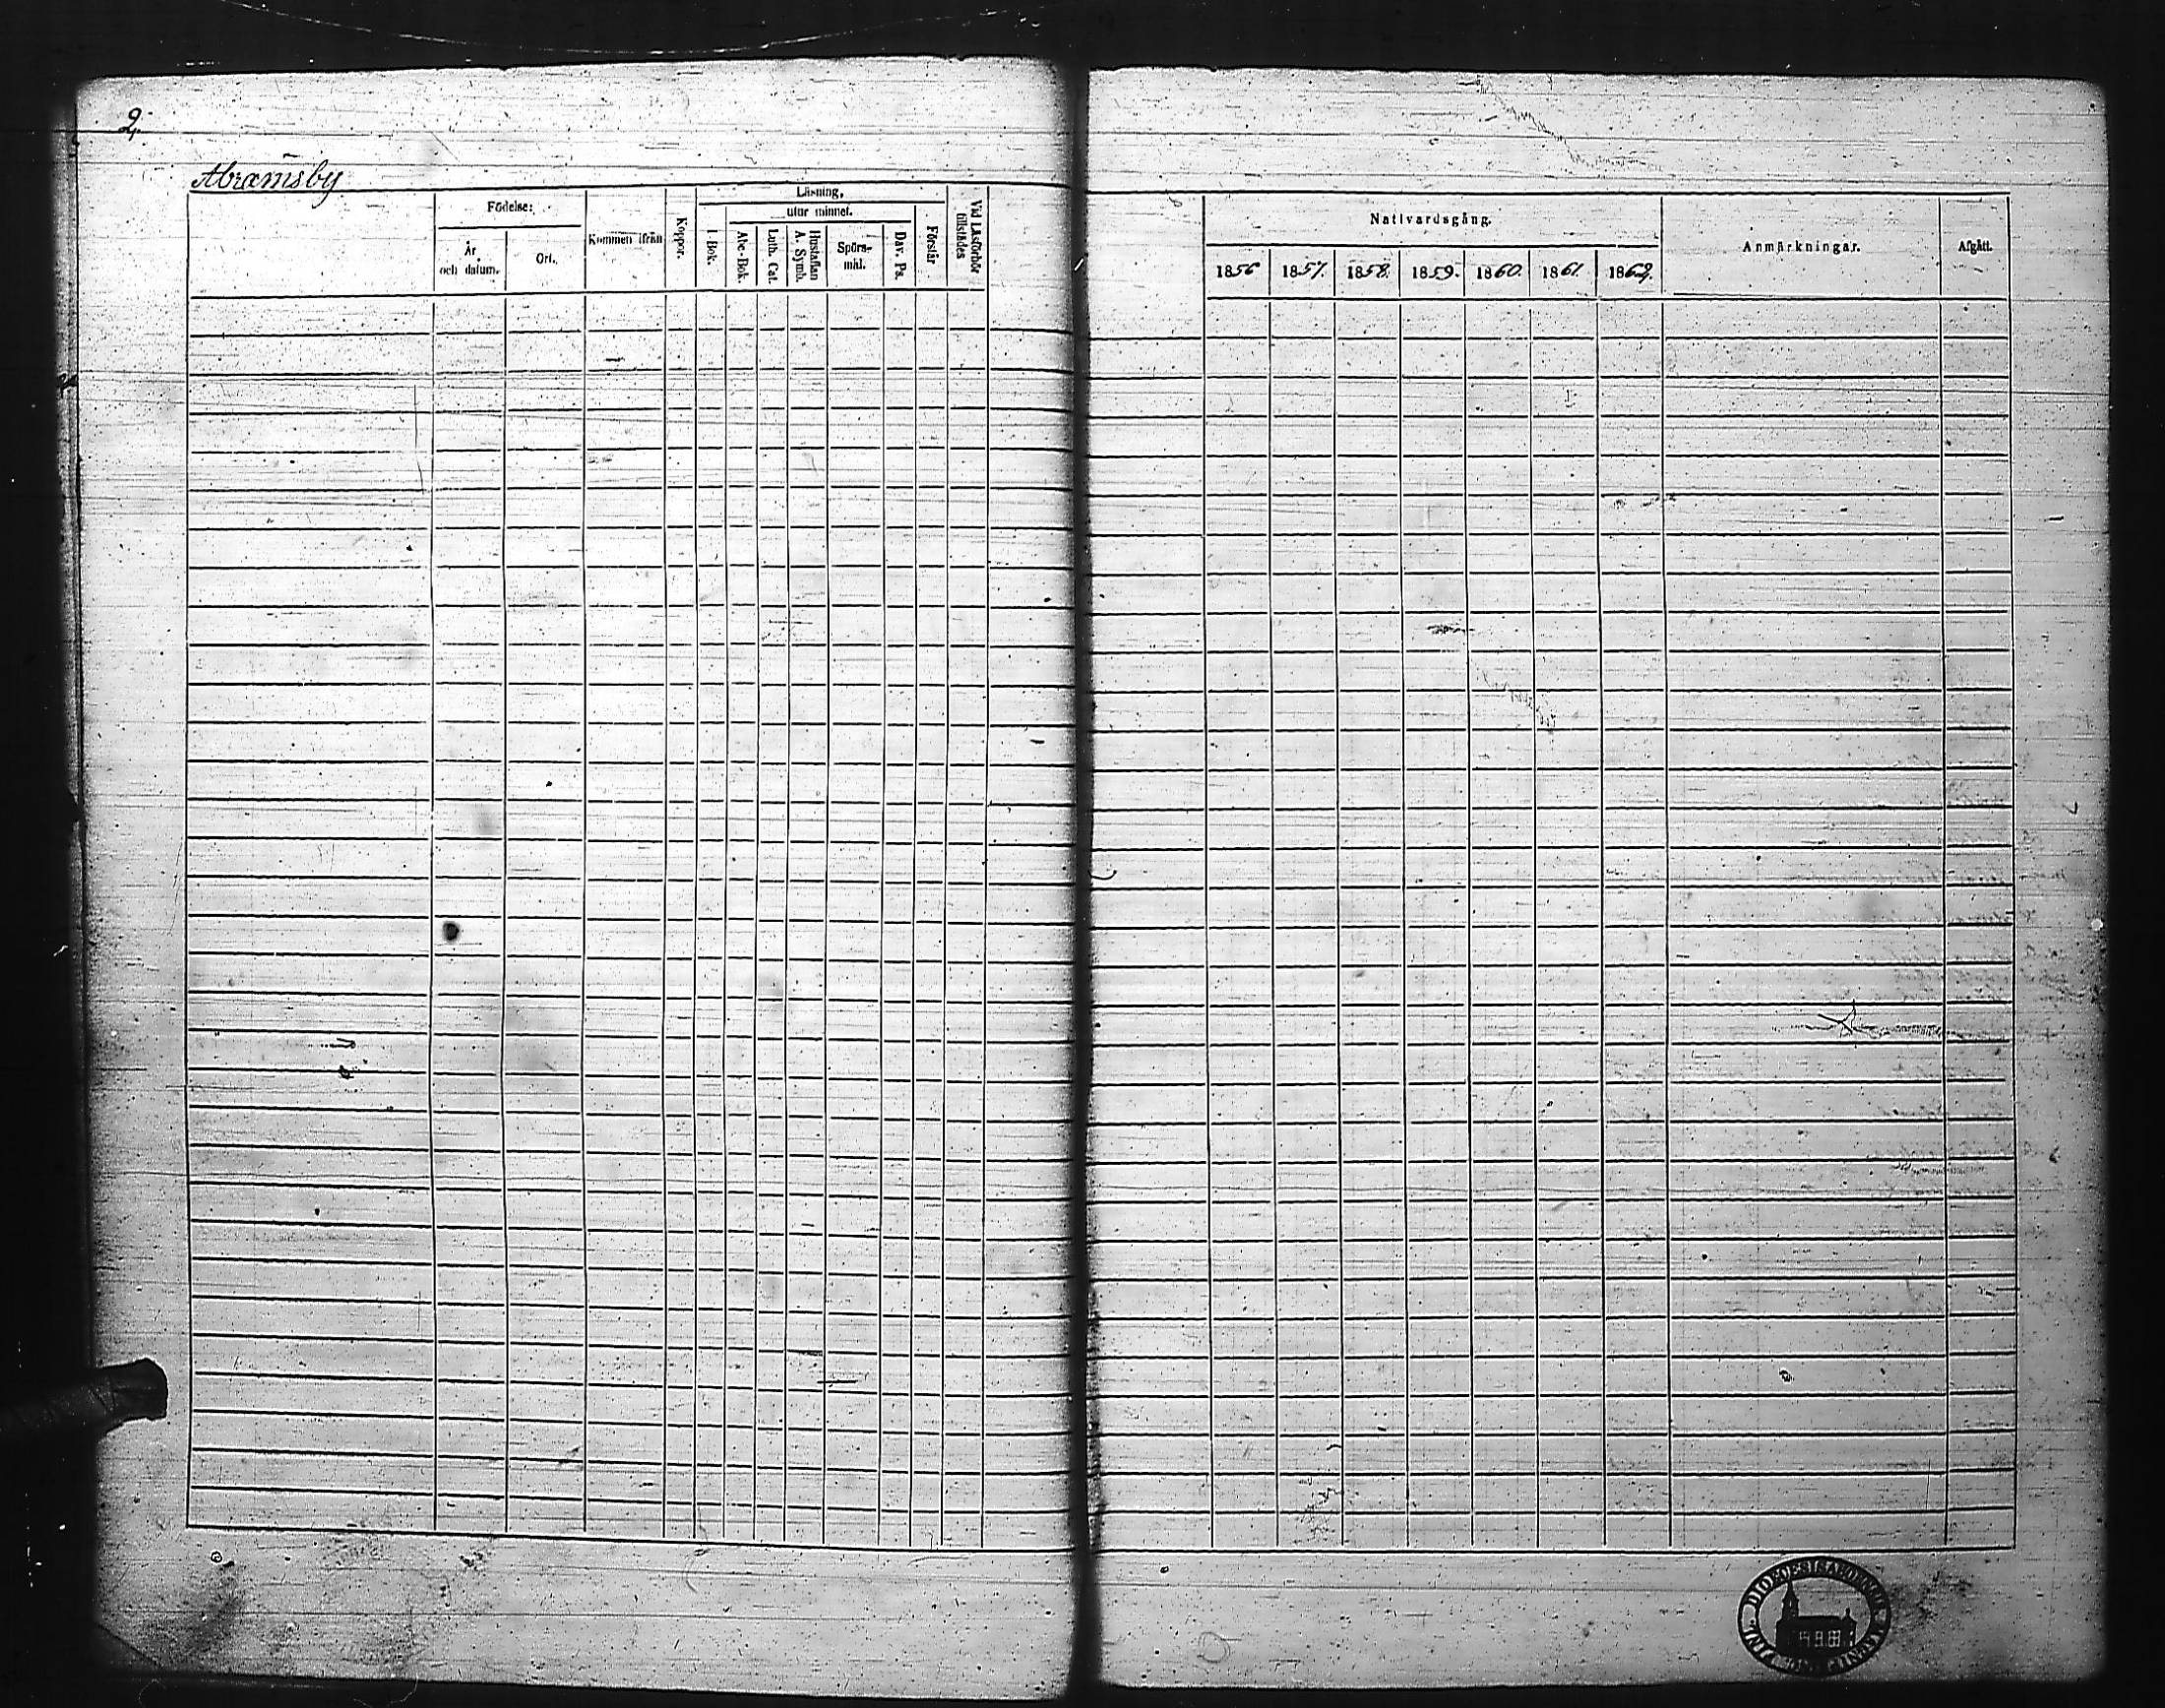 2.
Abramsby
Födelse:
År och datum.
Ort.
Kommen ifrån
Koppor.
Läsning,
utur minnet.
I Bok.
Abc-Bok.
Luth. Cat.
Hustaflan A. Symb.
Spörsmål.
Dav. Ps.
Förstår
Vid Läsförhör tillstädes
Nattvardsgång.
1856 1857. 1858. 1859. 1860. 1861. 1862.
Anmärkningar.
Afgått.